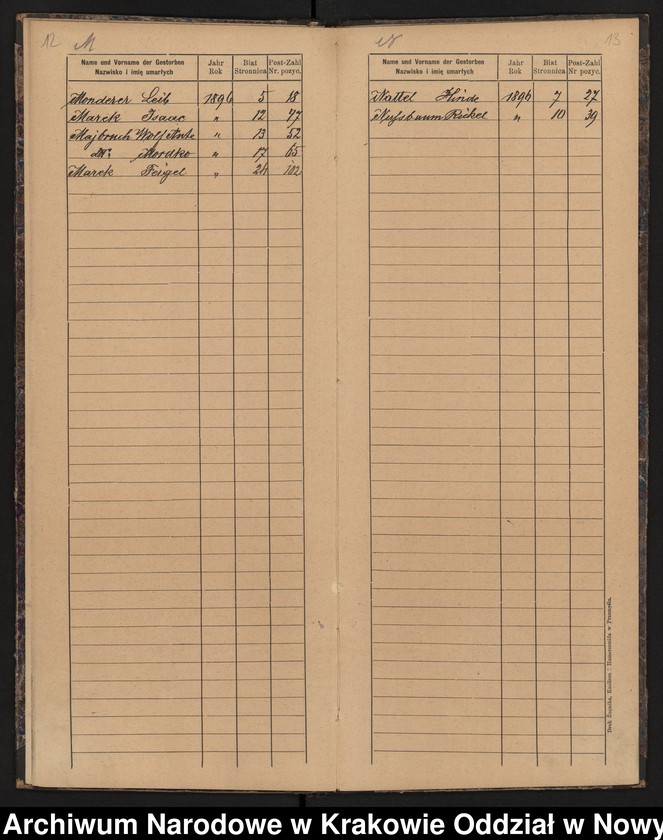 12 M
Name und Vorname der Gestorben
Nazwisko i imię umarłych
Jahr
Rok
Blat
Stronnica
Post-Zahl
Nr. pozyc.
Monderer Leib 1896 5 18
Marck Isaac " 12 47
Majbruch Wolf 13 52
Mordko " 17 65
Marck Feigel " 24 102
N 13
Name und Vorname der Gestorben
Nazwisko i imię umarłych
Jahr
Rok
Blat
Stronnica
Post-Zahl
Nr pozyc.
Nattel Hinde 1896 7 27
Nussbaum Rickel " 10 39
Druk Żupnika, Knollera i Hammerschmidta w Przemyślu.
Archiwum Narodowe w Krakowie Oddział w Nowy